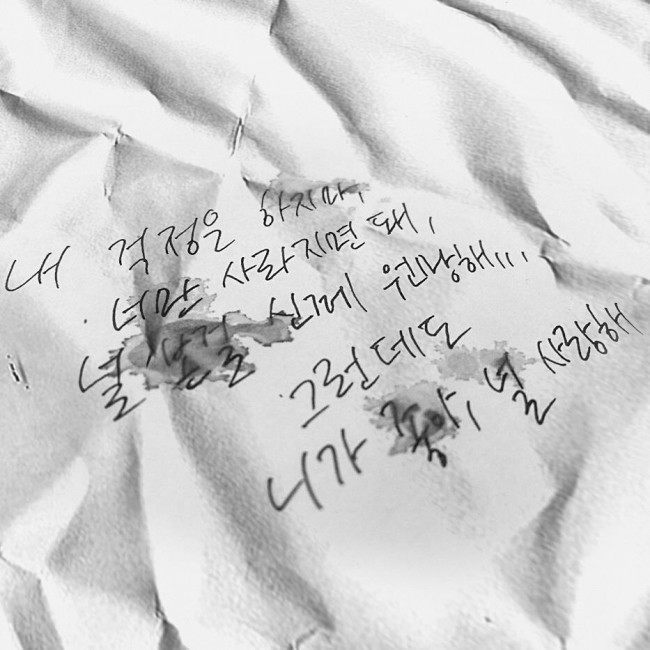 내 걱정은 하지마,
너만 사라지면 돼,
널 신께 원망해...
그런데도
니가 좋아, 널 사랑해